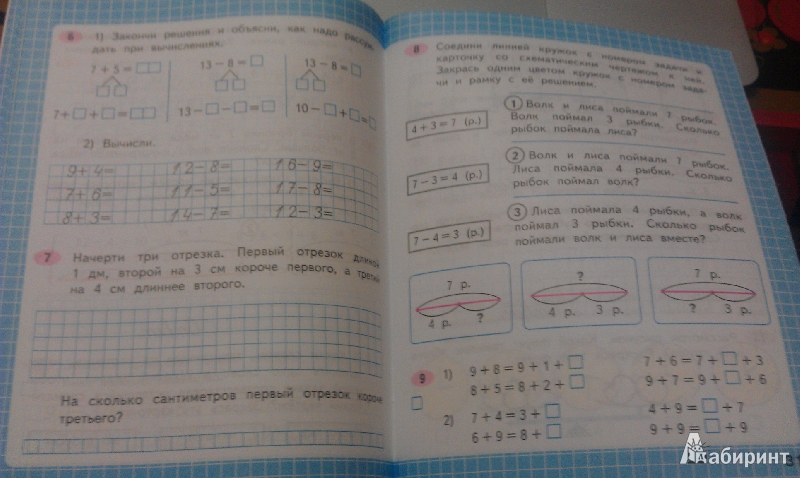 6 1) Закончи решения и объясни, как надо рассуж
дать при вычислениях.
7+5=□□ 13-8=□ 13-8=□
7+□+□=□□ 13-□-□=□ 10-□+□=□
2) Вычисли.
9+4= 12-8= 16-9=
7+6= 11-5= 17-8=
8+3= 14-7= 12-3=
7 Начерти три отрезка. Первый отрезок длиной
1 дм, второй на 3 см короче первого, а третий
на 4 см длиннее второго.
На сколько сантиметров первый отрезок короче
третьего?
8 Соедини линией кружок с номером задачи и
карточку со схематическим чертежом к ней.
Закрась одним цветом кружок с номером зада-
чи и рамку с её решением.
4+3=7 (р.)
1 Волк и лиса поймали 7 рыбок.
Волк поймал 3 рыбки. Сколько
рыбок поймала лиса?
7-3=4 (р.)
2 Волк и лиса поймали 7 рыбок.
Лиса поймала 4 рыбки. Сколько
рыбок поймал волк?
7-4=3 (р.)
3 Лиса поймала 4 рыбки, а волк
поймал 3 рыбки. Сколько рыбок
поймали волк и лиса вместе?
7 р. ? 7 р.
4 р. ? 4 р. 3 р. ? 3 р.
9 1) 9+8=9+1+□ 7+6=7+□+3
8+5=8+2+□ 9+7=9+□+6
2) 7+4=3+□ 4+9=□+7
6+9=8+□ 9+9=□+9
Лабиринт